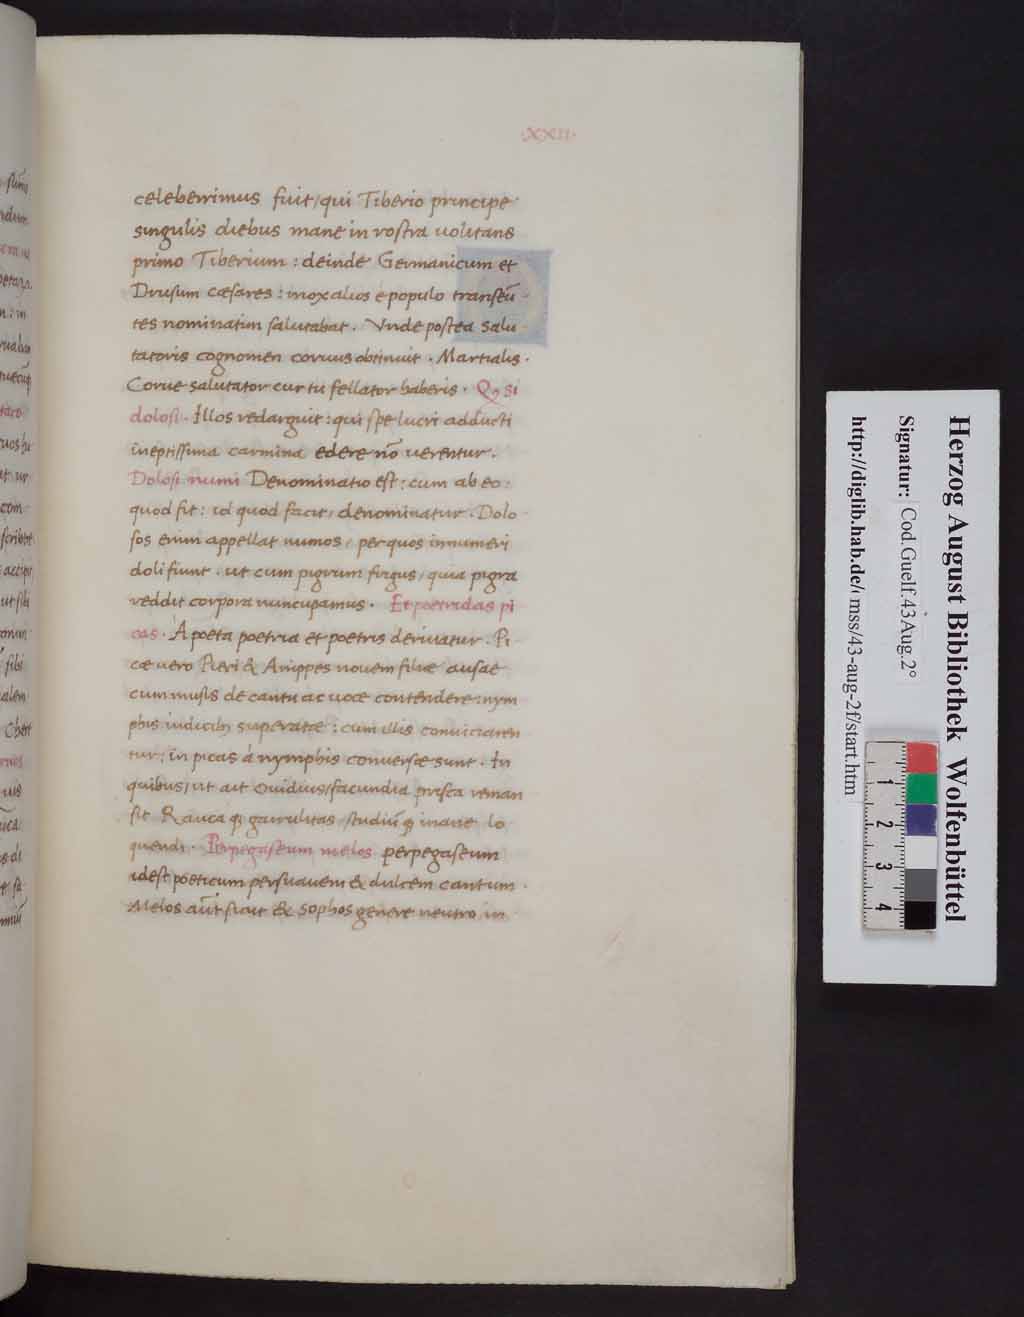 ·XXII·
celeberrimus fuit / qui Tiberio principe
singulis diebus mane in rostra uolitans
primo Tiberium : deinde Germanicum et
Drusum cæsares : mox alios e populo transeũ-
tes nominatim salutabat . Vnde postea salu-
tatoris cognomen coruus obtinuit . Martialis .
Corue salutator cur tu fellator haberis . Qꝫ si
dolosi . Illos redarguit : qui spe lucri adducti
ineptissima carmina edere nõ uerentur .
Dolosi numi Denominatio est : cum ab eo :
quod fit : id quod facit / denominatur . Dolo
sos enim appellat numos / per quos innumeri
doli fiunt . ut cum pigrum frigus / quia pigra
reddit corpora nuncupamus . Et poetridas pi
cas . A poeta poetria et poetris deriuatur . Pi
cæ uero Pieri & Anippes nouem filiæ ausæ
cum musis de cantu ac uoce contendere : nym
phis iudicibꝫ superatæ : cum illis conuiciaren
tur : in picas a nymphis conuersæ sunt . In
quibus / ut ait Ouidius / facundia prisca reman
sit Raucaqꝫ garrulitas studiũqꝫ inane lo
quendi . Perpegaseum melos perpegaseum
idest poeticum persuauem & dulcem cantum .
Melos aũt sicut & sophos genere neutro in
st̃im
Herzog August Bibliothek Wolfenbüttel
Signatur: Cod.Guelf.43 Aug.2°
http://diglib.hab.de/ mss/43-aug-2f/start.htm
1
2
3
4